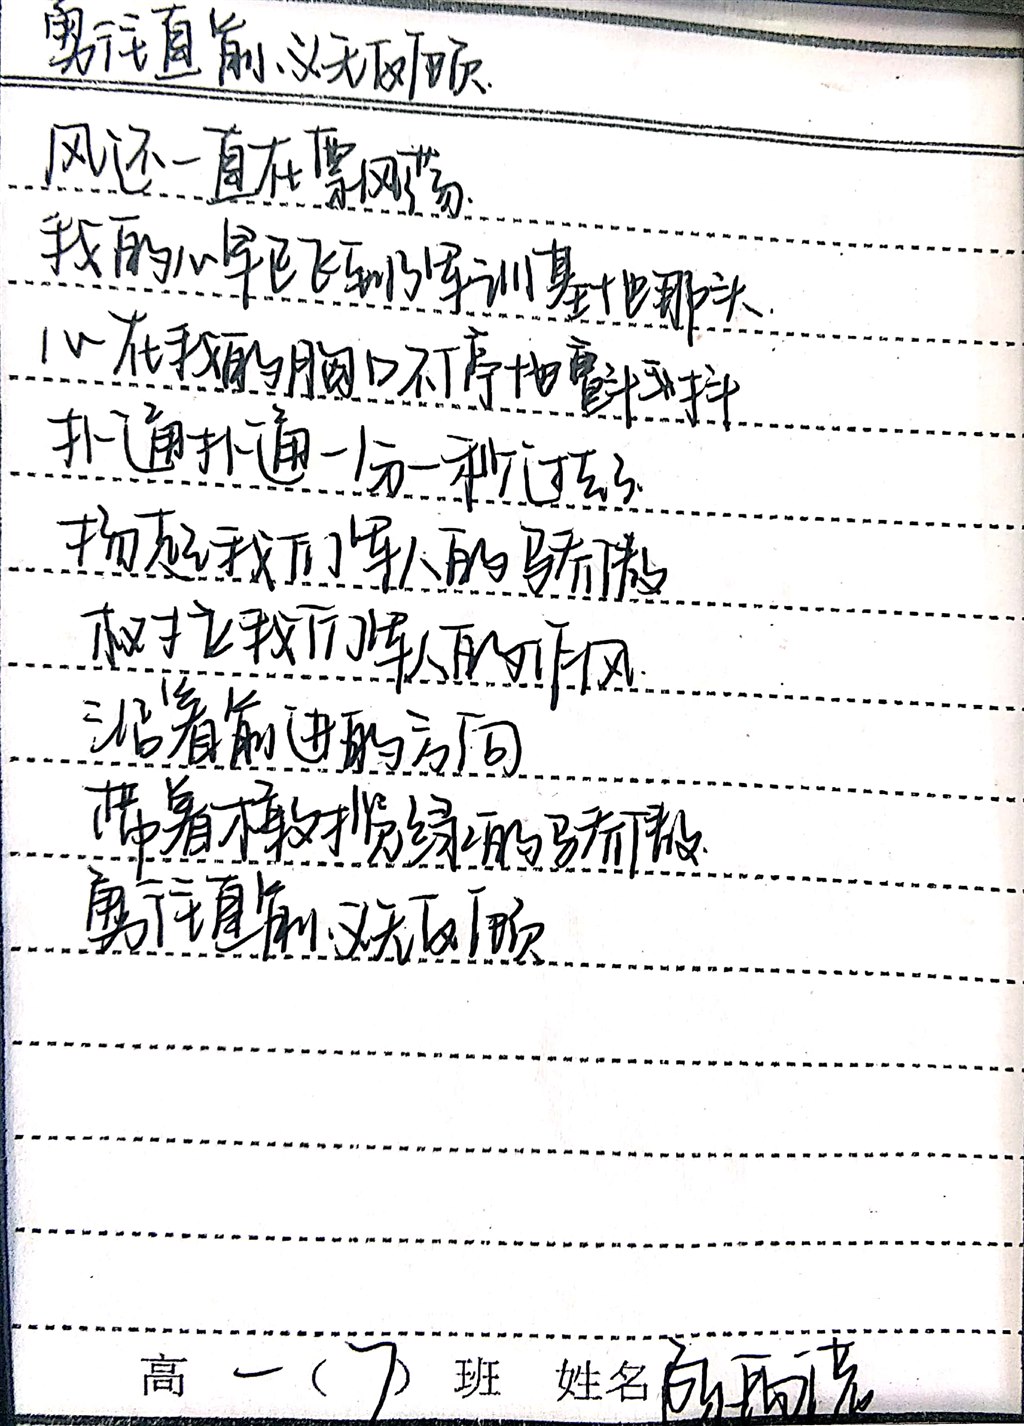 勇往直前、义无反顾.
风还一直在飘荡.
我的心早已飞到了军训基地那头.
心在我的胸口不停地颤抖
扑通扑通一分一秒过去了.
扬起我们军人的骄傲
树立我们军人的作风.
沿着前进的方向
带着橄榄绿的骄傲.
勇往直前、义无反顾
高一(7)班 姓名